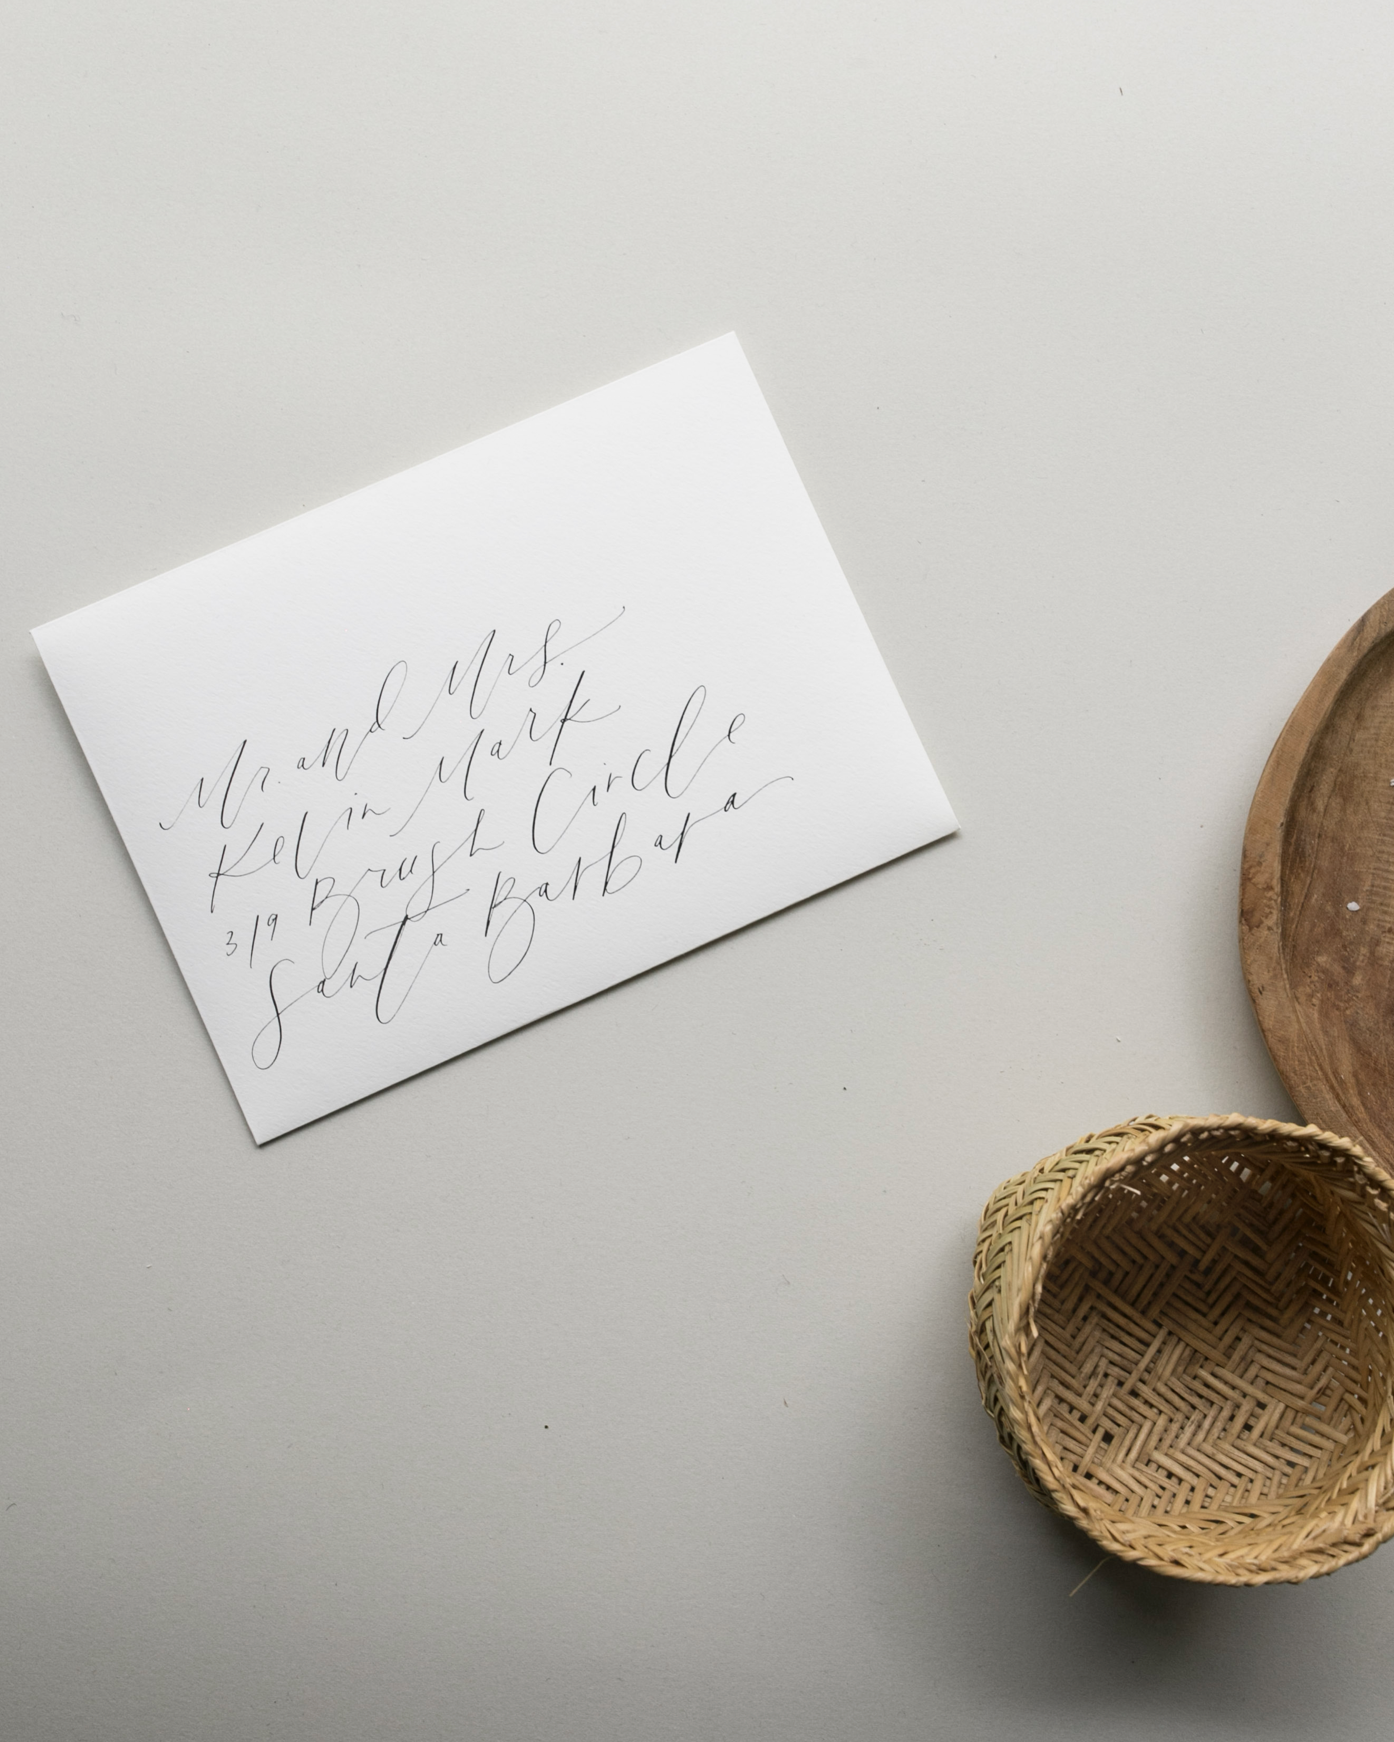 Mr. and Mrs.
Kelvin Mark
319 Brush Circle
Santa Barbara